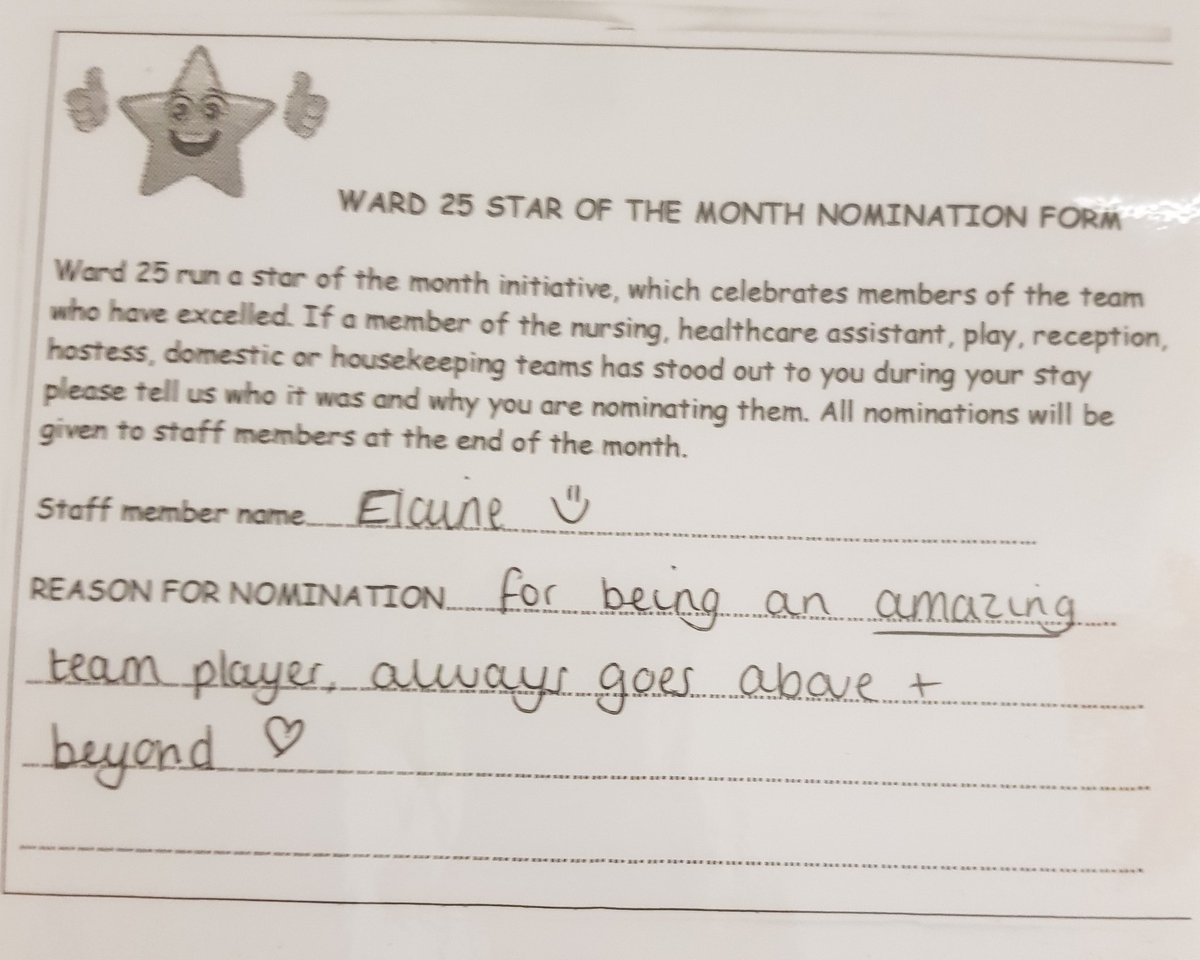 WARD 25 STAR OF THE MONTH NOMINATION FORM
Ward 25 run a star of the month initiative, which celebrates members of the team
who have excelled. If a member of the nursing, healthcare assistant, play, reception,
hostess, domestic or housekeeping teams has stood out to you during your stay
please tell us who it was and why you are nominating them. All nominations will be
given to staff members at the end of the month.
Staff member name Elaine
REASON FOR NOMINATION for being an amazing
team player, always goes above +
beyond